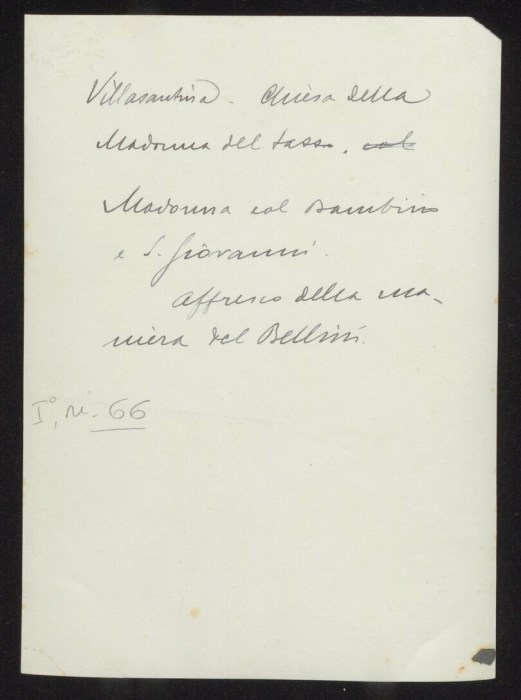 Villasantina. Chiesa della
Madonna del Sasso. col
Madonna col Bambino
e S. Giovanni.
Affresco della ma-
niera del Bellini.
I°, n. 66